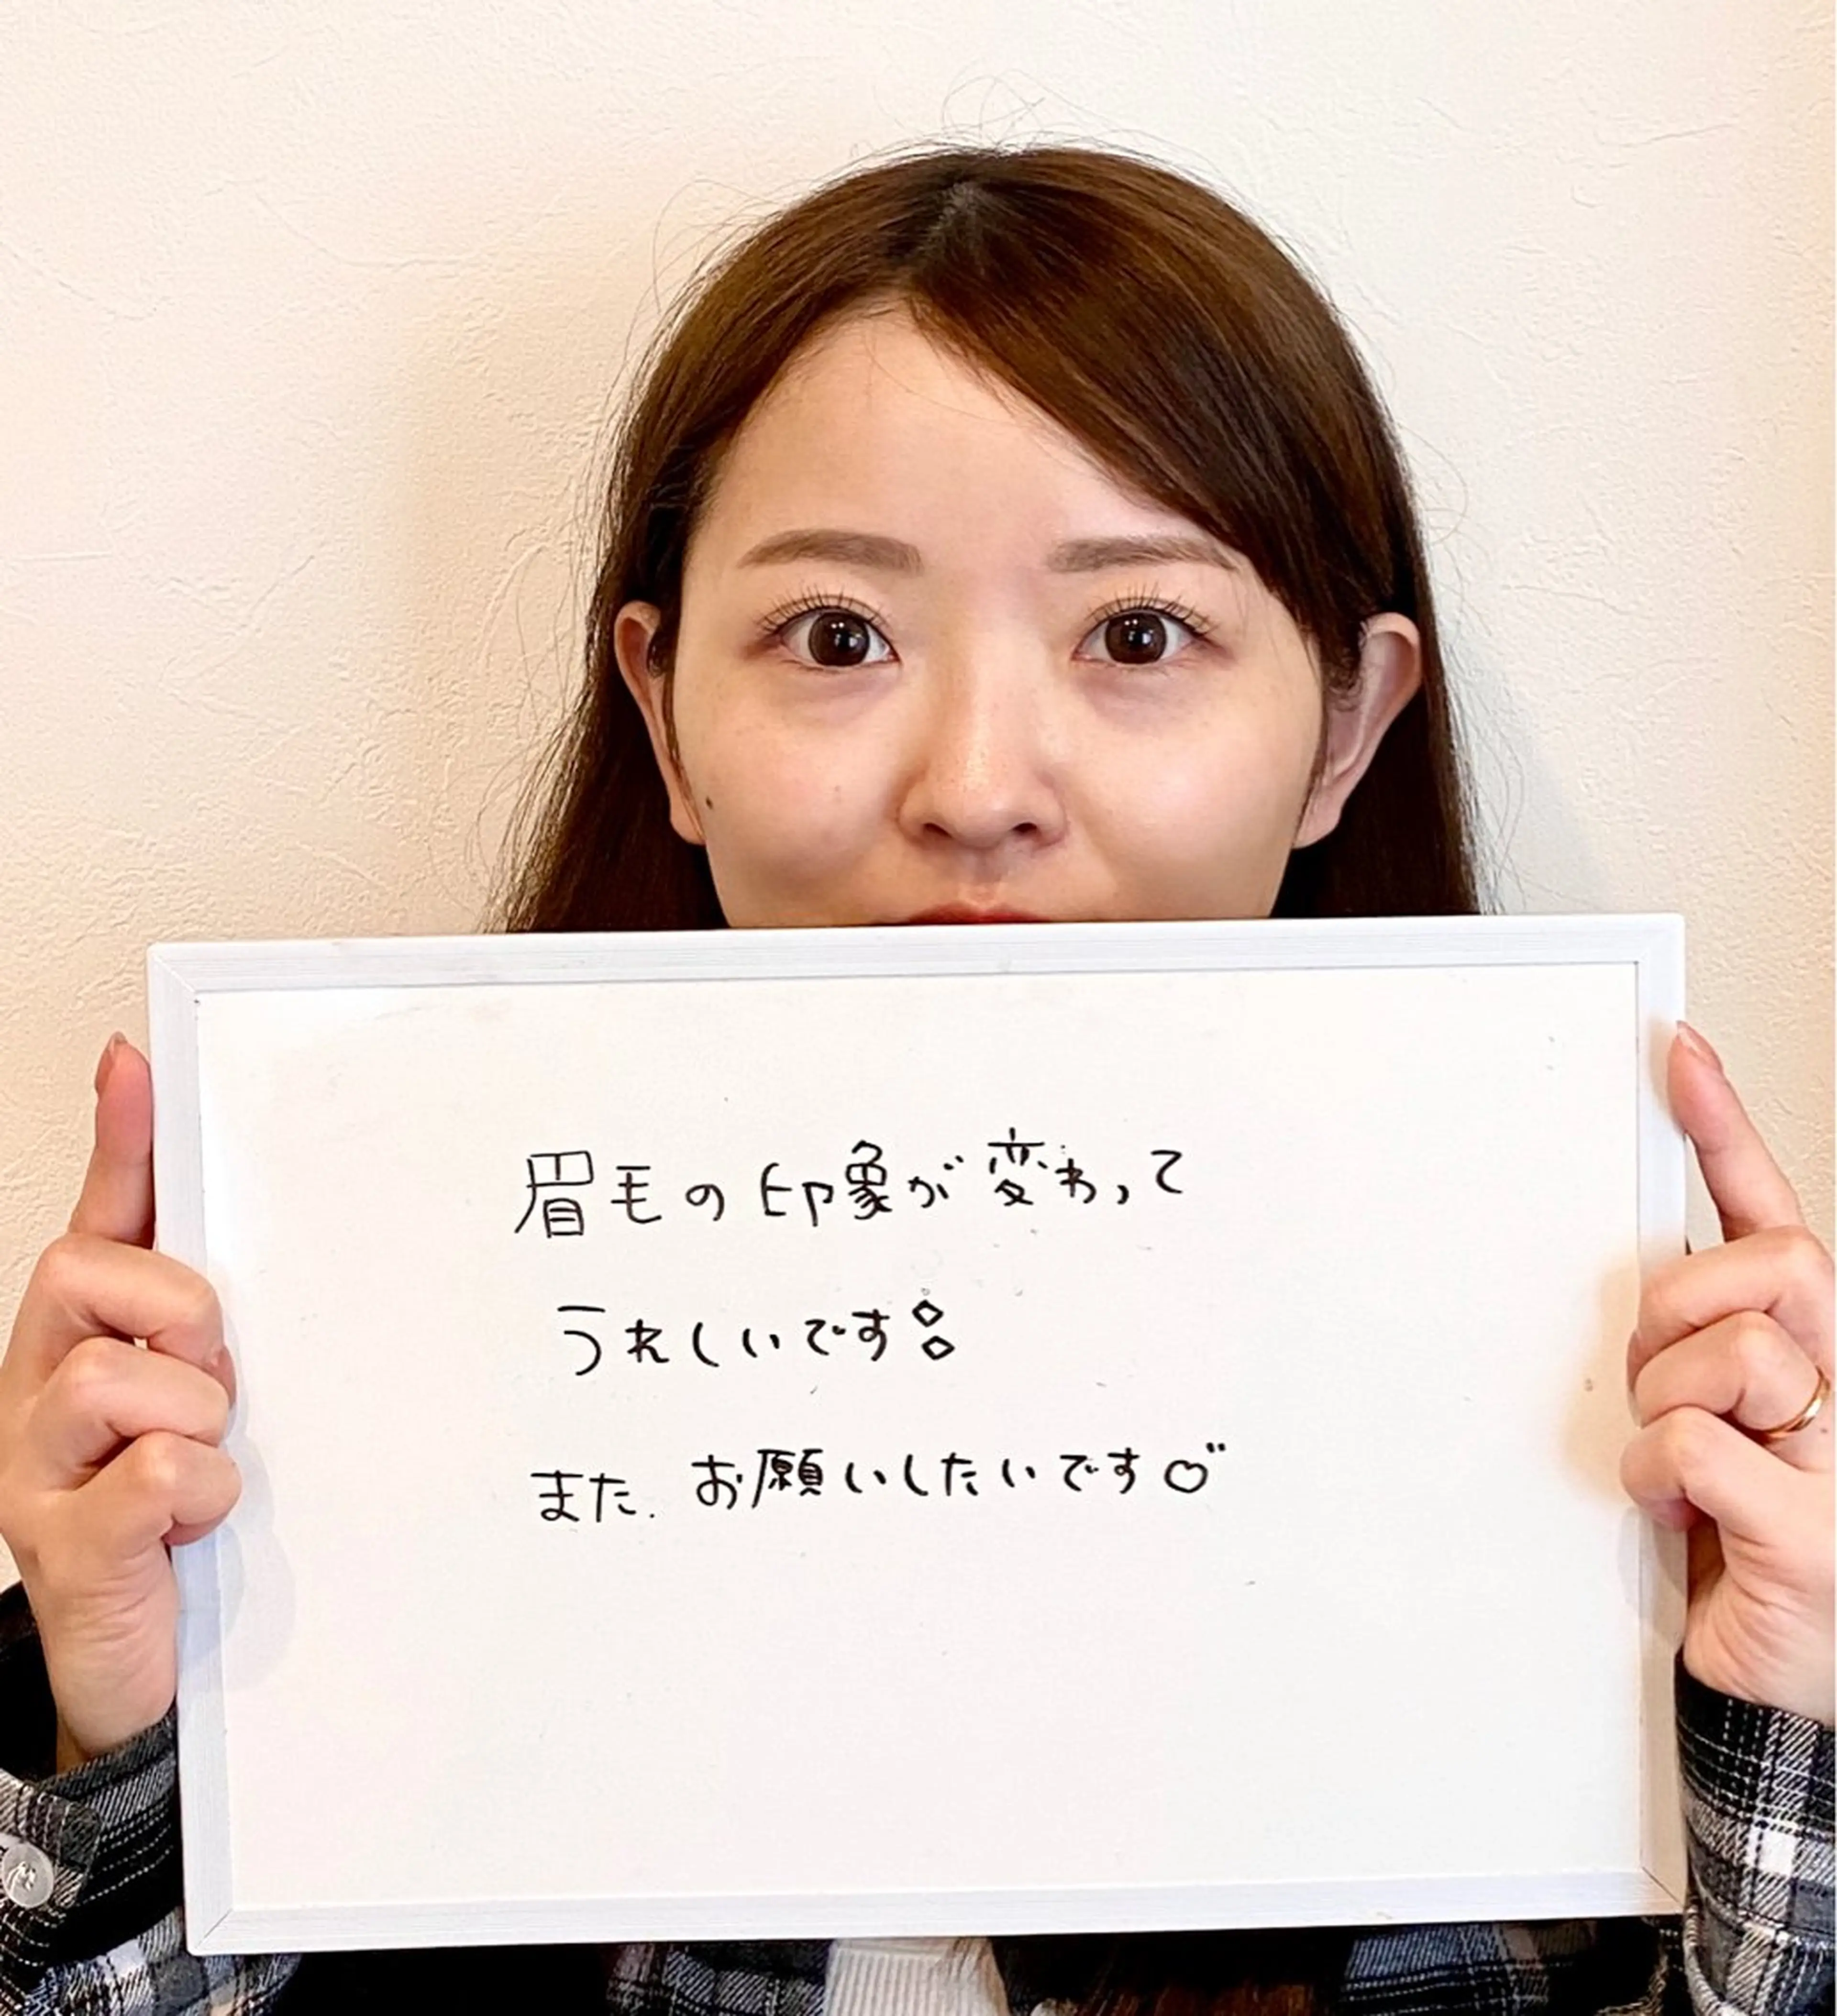 眉毛の印象が変わって
うれしいです
また、お願いしたいです♡